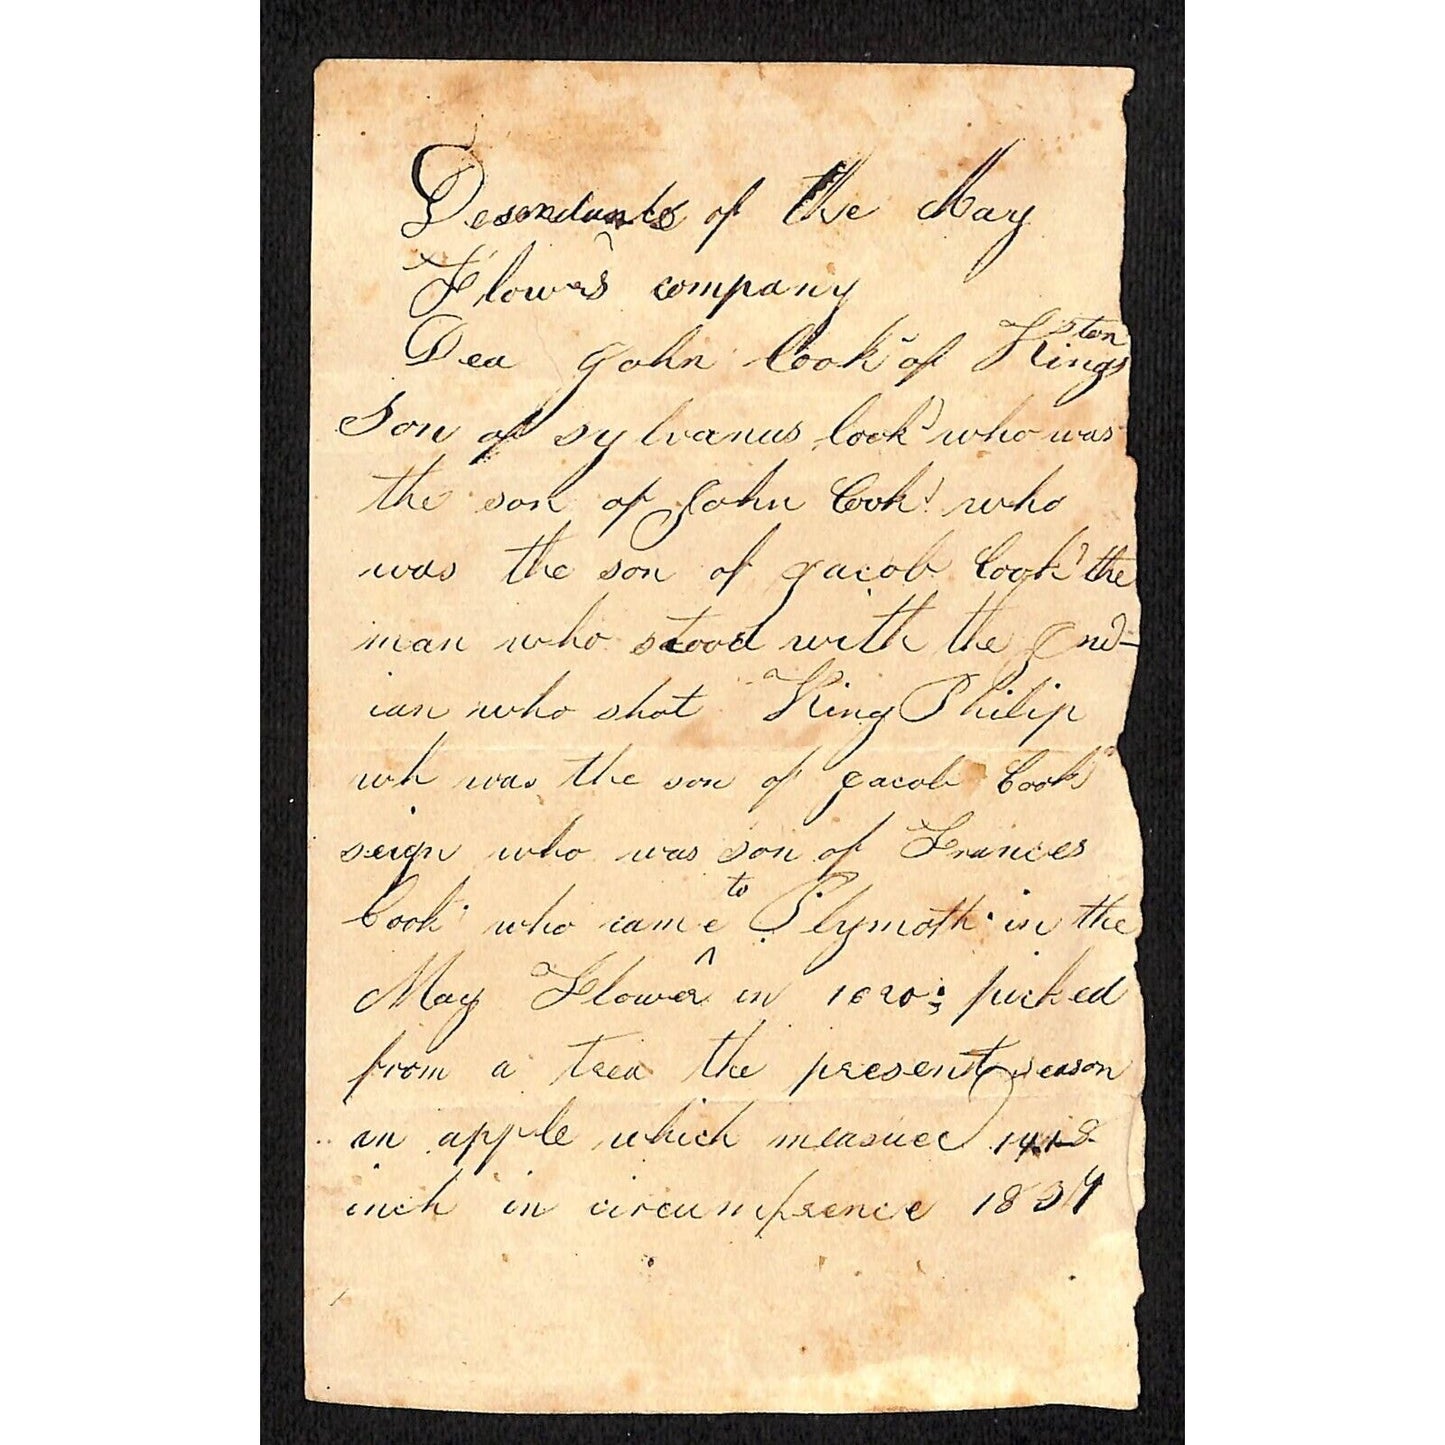 Desendants of the May
Flowers company
Dea John Cook of Kingston
Son of sylvanus Cook who was
the son of John Cook who
was the son of Jacob Cook the
man who stood with the Ind-
ian who shot King Philip
wh was the son of Jacob Cook
seign who was son of Frances
Cook who came to Plymoth in the
May Flower in 1620; picked
from a trea the present season
an apple which measuer
inch in circumfrence